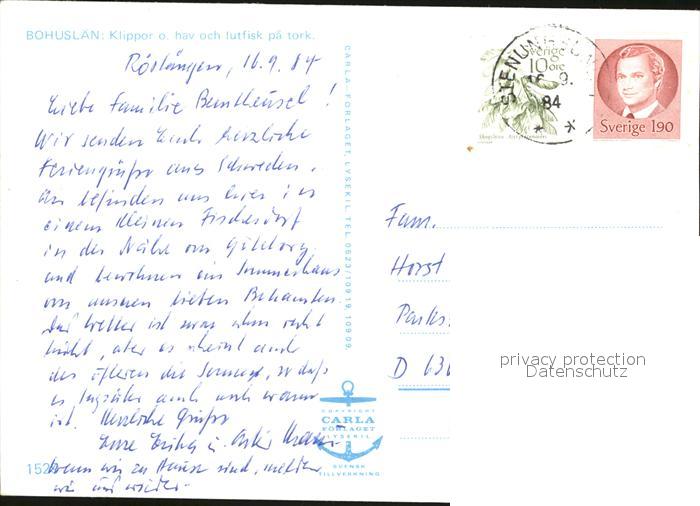 BOHUSLÄN: Klippor o. hav och lutfisk på tork.
16.9.84
Liebe Familie
Wir senden Euch herzliche
Feriengrüße aus Schweden.
befinden uns hier in
einem kleinen Fischerdorf
in der Nähe von Göteborg
und bewohnen ein Sommerhaus
von unseren lieben Bekannten.
Das Wetter ist zwar
aber es scheint auch
des öfteren die Sonne, so daß
es tagsüber auch noch warm
ist. Herzliche Grüße
Eure Erika u.
Wenn wir zu Hause sind, melden
wir uns wieder.
152
CARLA-FÖRLAGET, LYSEKIL. TEL. 0523/10919, 10909.
COPYRIGHT
CARLA
FÖRLAGET
LYSEKIL
SVENSK
TILLVERKNING
Sverige
10 öre
STENUNGSUND
16. 9.
84
Sverige 190
Fam.
Horst
Parks
D 636
privacy protection
Datenschutz